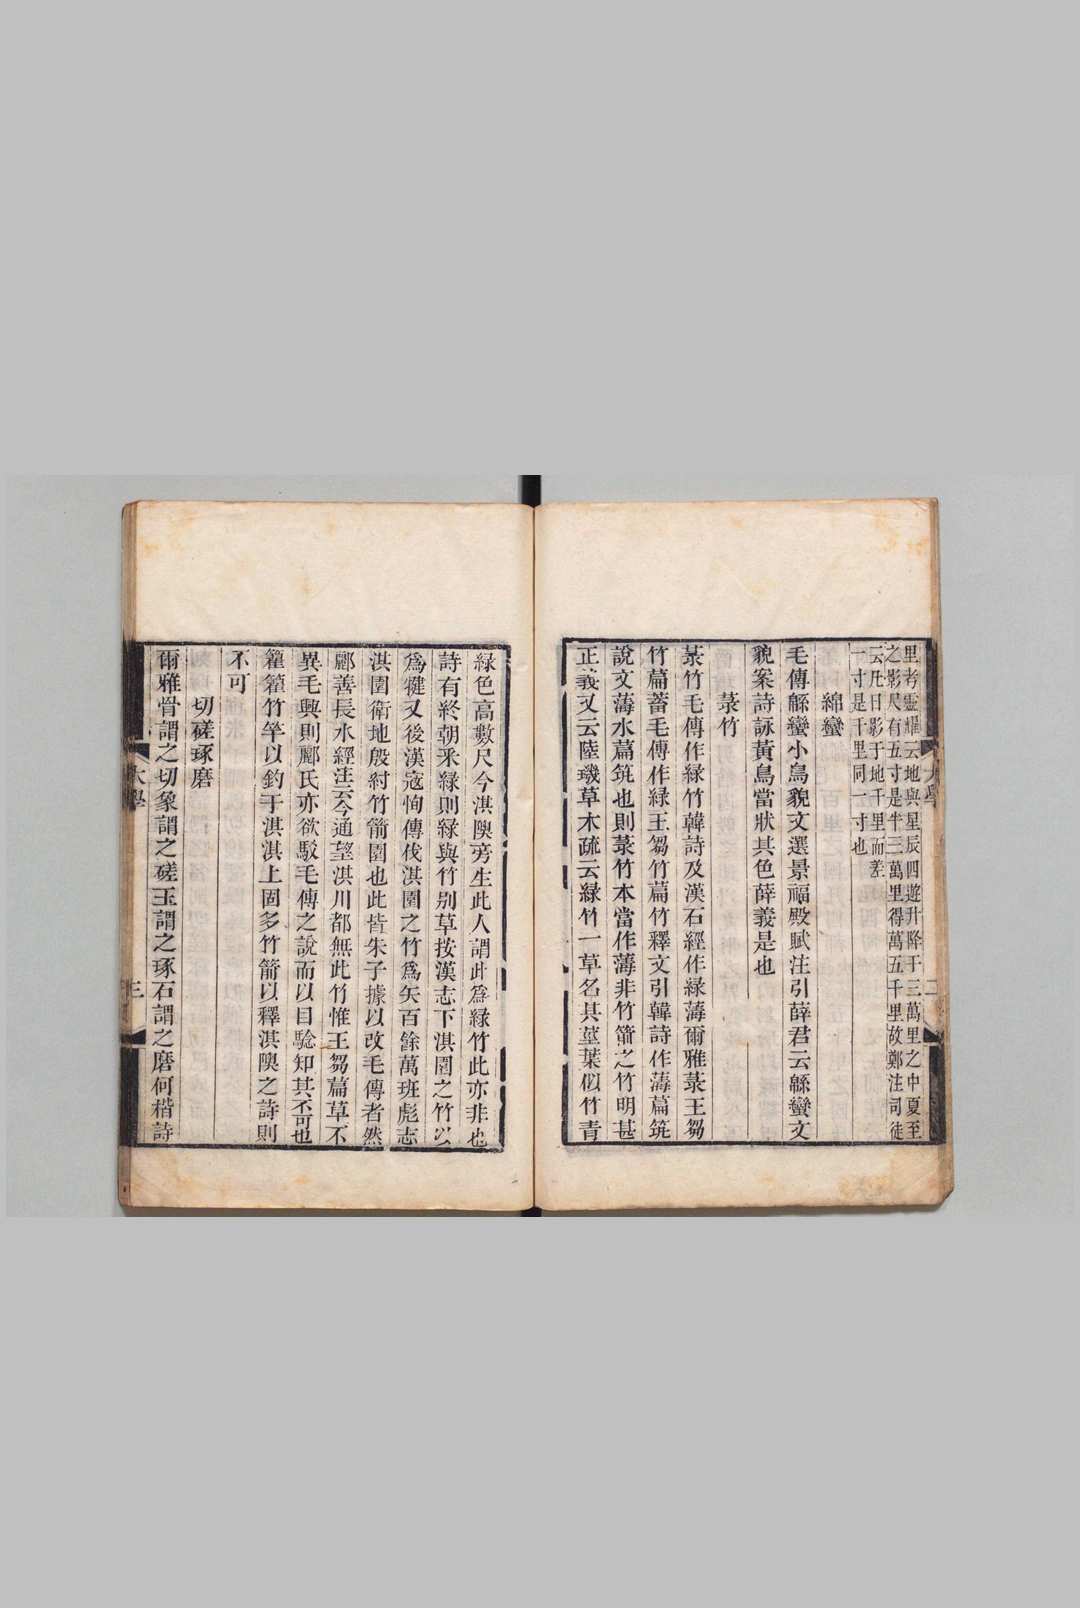 里考靈耀云地與星辰四遊升降于三萬里之中夏至
之影尺有五寸是半三萬里得萬五千里故鄭注司徒
云凡日影于地千里而差
一寸是千里同一寸也
綿蠻
毛傳緜蠻小鳥貌文選景福殿賦注引薛君云緜蠻文
貌案詩詠黃鳥當狀其色薛義是也
菉竹
菉竹毛傳作綠竹韓詩及漢石經作綠薄爾雅菉王芻
竹萹蓄毛傳作綠王芻竹萹竹釋文引韓詩作薄萹筑
說文薄水萹筑也則菉竹本當作薄非竹箭之竹明甚
正義又云陸璣草木疏云綠竹一草名其莖葉似竹青
綠色高數尺今淇隩旁生此人謂此為綠竹此亦非也
詩有終朝采綠則綠與竹別草按漢志下淇園之竹以
為楗又後漢寇恂傳伐淇園之竹為矢百餘萬班彪志
淇園衛地殷紂竹箭園也此皆朱子據以改毛傳者然
酈善長水經注云今通望淇川都無此竹惟王芻萹草不
異毛興則酈氏亦欲駁毛傳之說而以目驗知其不可也
籊籊竹竿以釣于淇淇上固多竹箭以釋淇隩之詩則
不可
切磋琢磨
爾雅骨謂之切象謂之磋玉謂之琢石謂之磨何楷詩
大學
二
大學
三